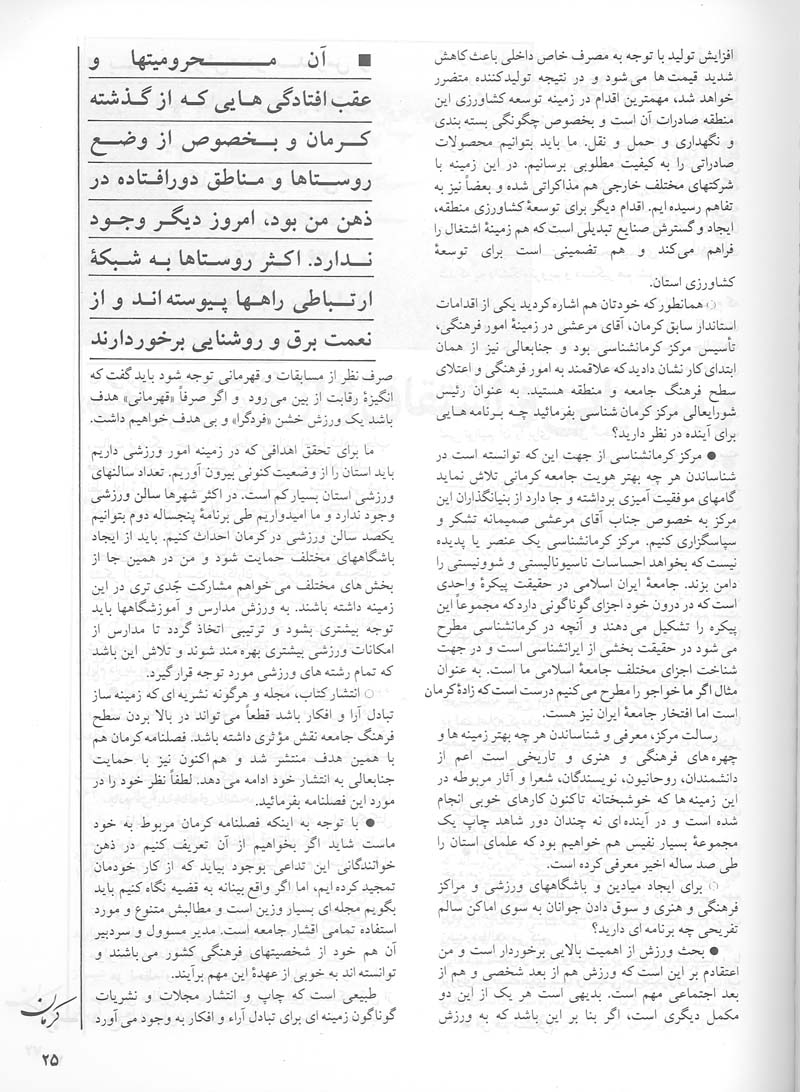 افزایش تولید با توجه به مصرف خاص داخلی باعث کاهش
شدید قیمت‌ها می‌شود و در نتیجه تولیدکننده متضرر
خواهد شد، مهمترین اقدام در زمینه توسعه کشاورزی این
منطقه صادرات آن است و بخصوص چگونگی بسته بندی
و نگهداری و حمل و نقل. ما باید بتوانیم محصولات
صادراتی را به کیفیت مطلوبی برسانیم. در این زمینه با
شرکتهای مختلف خارجی هم مذاکراتی شده و بعضاً نیز به
تفاهم رسیده ایم. اقدام دیگر برای توسعۀ کشاورزی منطقه،
ایجاد و گسترش صنایع تبدیلی است که هم زمینۀ اشتغال را
فراهم می‌کند و هم تضمینی است برای توسعۀ
کشاورزی استان.
○ همانطور که خودتان هم اشاره کردید یکی از اقدامات
استاندار سابق کرمان، آقای مرعشی در زمینۀ امور فرهنگی،
تأسیس مرکز کرمانشناسی بود و جنابعالی نیز از همان
ابتدای کار نشان دادید که علاقمند به امور فرهنگی و اعتلای
سطح فرهنگ جامعه و منطقه هستید. به عنوان رئیس
شورایعالی مرکز کرمان شناسی بفرمائید چه برنامه هایی
برای آینده در نظر دارید؟
● مرکز کرمانشناسی از جهت این که توانسته است در
شناساندن هر چه بهتر هویت جامعه کرمانی تلاش نماید
گامهای موفقیت آمیزی برداشته و جا دارد از بنیانگذاران این
مرکز به خصوص جناب آقای مرعشی صمیمانه تشکر و
سپاسگزاری کنیم. مرکز کرمانشناسی یک عنصر یا پدیده
نیست که بخواهد احساسات ناسیونالیستی و شوونیستی را
دامن بزند. جامعۀ ایران اسلامی در حقیقت پیکرۀ واحدی
است که در درون خود اجزای گوناگونی دارد که مجموعاً این
پیکره را تشکیل می دهند و آنچه در کرمانشناسی مطرح
می شود در حقیقت بخشی از ایرانشناسی است و در جهت
شناخت اجزای مختلف جامعۀ اسلامی ما است. به عنوان
مثال اگر ما خواجو را مطرح می‌کنیم درست است که زادۀ کرمان
است اما افتخار جامعۀ ایران نیز هست.
رسالت مرکز، معرفی و شناساندن هر چه بهتر زمینه ها و
چهره‌های فرهنگی و هنری و تاریخی است اعم از
دانشمندان، روحانیون، نویسندگان، شعرا و آثار مربوطه در
این زمینه ها که خوشبختانه تاکنون کارهای خوبی انجام
شده است و در آینده‌ای نه چندان دور شاهد چاپ یک
مجموعۀ بسیار نفیس هم خواهیم بود که علمای استان را
طی صد ساله اخیر معرفی کرده است.
○ برای ایجاد میادین و باشگاههای ورزشی و مراکز
فرهنگی و هنری و سوق دادن جوانان به سوی اماکن سالم
تفریحی چه برنامه ای دارید؟
● بحث ورزش از اهمیت بالایی برخوردار است و من
اعتقادم بر این است که ورزش هم از بعد شخصی و هم از
بعد اجتماعی مهم است. بدیهی است هر یک از این دو
مکمل دیگری است، اگر بنا بر این باشد که به ورزش
■ آن محرومیتها و
عقب افتادگی هایی که از گذشته
کرمان و بخصوص از وضع
روستاها و مناطق دورافتاده در
ذهن من بود، امروز دیگر وجود
ندارد. اکثر روستاها به شبکۀ
ارتباطی راهها پیوسته اند و از
نعمت برق و روشنایی برخوردارند
صرف نظر از مسابقات و قهرمانی توجه شود باید گفت که
انگیزۀ رقابت از بین می‌رود و اگر صرفاً «قهرمانی» هدف
باشد یک ورزش خشن «فردگرا» و بی هدف خواهیم داشت.
ما برای تحقق اهدافی که در زمینه امور ورزشی داریم
باید استان را از وضعیت کنونی بیرون آوریم. تعداد سالنهای
ورزشی استان بسیار کم است. در اکثر شهرها سالن ورزشی
وجود ندارد و ما امیدواریم طی برنامۀ پنجساله دوم بتوانیم
یکصد سالن ورزشی در کرمان احداث کنیم. باید از ایجاد
باشگاههای مختلف حمایت شود و من در همین جا از
بخش های مختلف می خواهم مشارکت جّدی تری در این
زمینه داشته باشند. به ورزش مدارس و آموزشگاهها باید
توجه بیشتری بشود و ترتیبی اتخاذ گردد تا مدارس از
امکانات ورزشی بیشتری بهره مند شوند و تلاش این باشد
که تمام رشته های ورزشی مورد توجه قرار گیرد.
○ انتشار کتاب، مجله و هرگونه نشریه ای که زمینه ساز
تبادل آرا و افکار باشد قطعاً می تواند در بالا بردن سطح
فرهنگ جامعه نقش مؤثری داشته باشد. فصلنامه کرمان هم
با همین هدف منتشر شد و هم‌اکنون نیز با حمایت
جنابعالی به انتشار خود ادامه می دهد. لطفاً نظر خود را در
مورد این فصلنامه بفرمائید.
● با توجه به اینکه فصلنامه کرمان مربوط به خود
ماست شاید اگر بخواهیم از آن تعریف کنیم در ذهن
خوانندگانی این تداعی بوجود بیاید که از کار خودمان
تمجید کرده ایم، اما اگر واقع بینانه به قضیه نگاه کنیم باید
بگویم مجله ای بسیار وزین است و مطالبش متنوع و مورد
استفاده تمامی اقشار جامعه است. مدیر مسوول و سردبیر
آن هم خود از شخصیتهای فرهنگی کشور می‌باشند و
توانسته اند به خوبی از عهدۀ این مهم برآیند.
طبیعی است که چاپ و انتشار مجلات و نشریات
گوناگون زمینه ای برای تبادل آراء و افکار به وجود می آورد
کرمان
۲۵